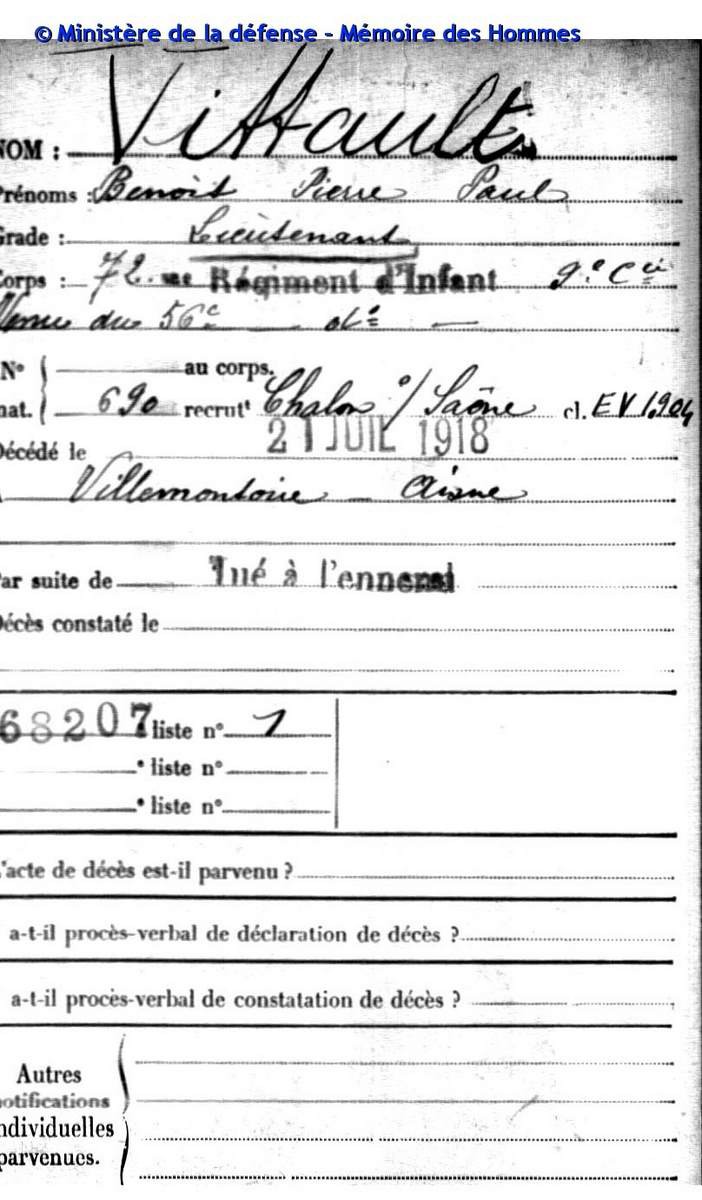 © Ministère de la défense - Mémoire des Hommes
NOM : Vittault
Prénoms : Benoit Pierre Paul
Grade : Lieutenant
Corps : 72 me Régiment d'Infant 9e Cie
Venu du 56e
N° au corps.
mat. 690 recrutt Chalon s/ Saône cl. EV 1904
Décédé le 21 JUIL 1918
Villemontoire - Aisne
Par suite de Tué à l'ennemi
Décès constaté le
68207 liste n° 1
liste n°
liste n°
L'acte de décès est-il parvenu ?
a-t-il procès-verbal de déclaration de décès ?
a-t-il procès-verbal de constatation de décès ?
Autres
notifications
individuelles
parvenues.